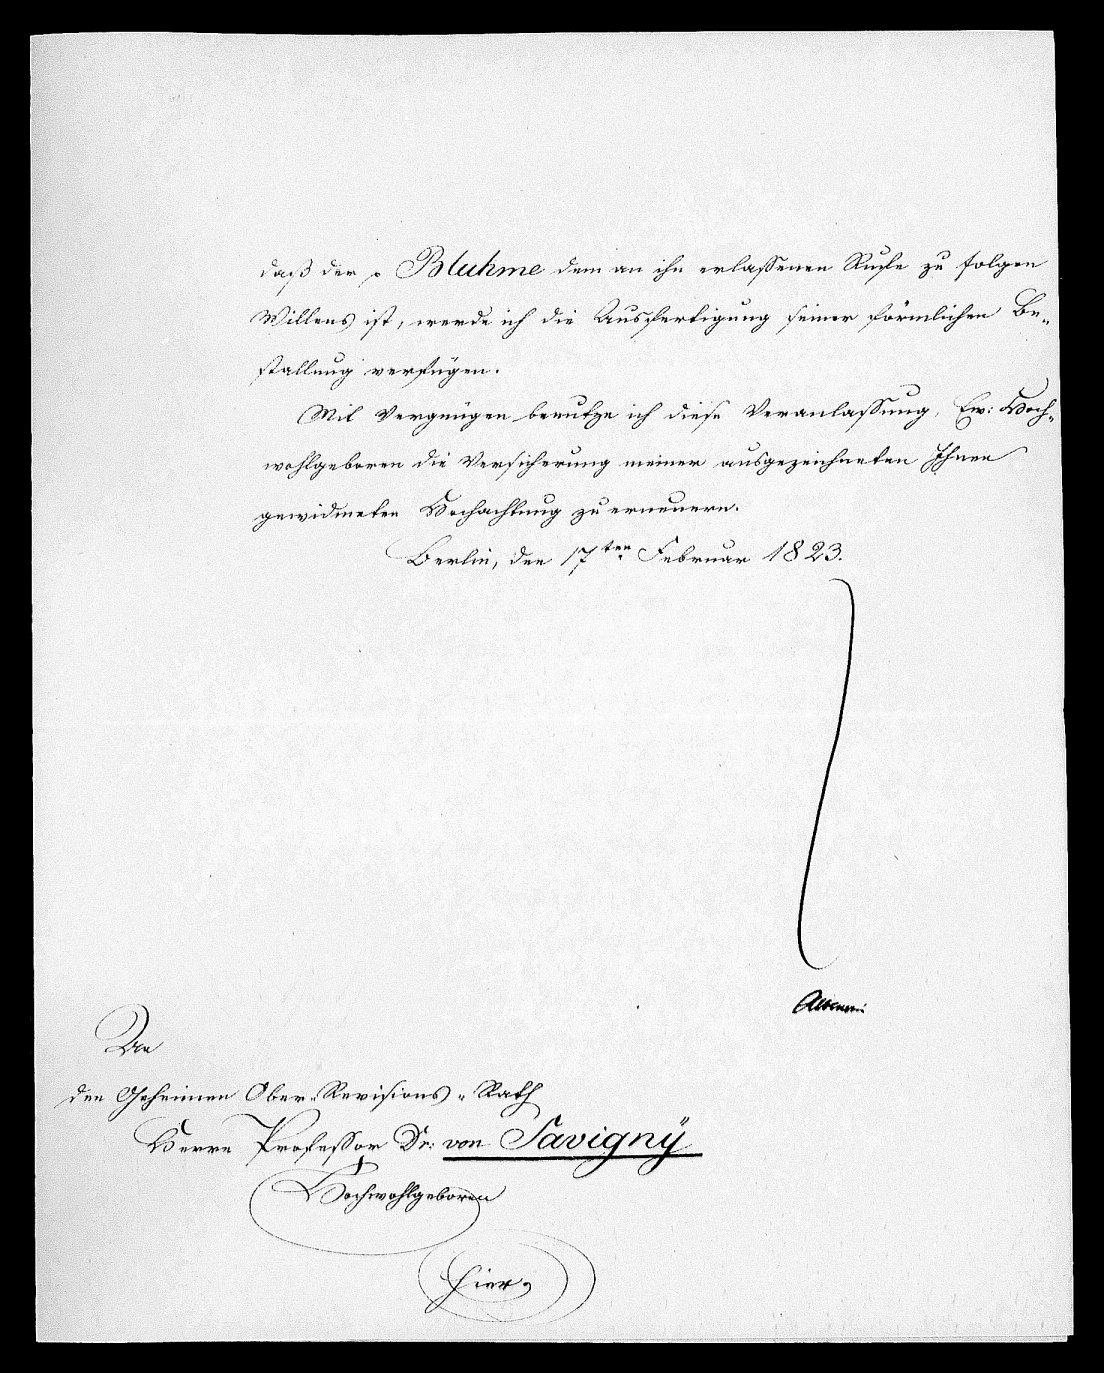 daß der p Bluhme dem an ihn erlassenen Rufe zu folgen
Willens ist, werde ich die Ausfertigung seiner förmlichen Be-
stallung verfügen.
Mit Vergnügen benutze ich diese Veranlassung, Ew: Hoch-
wohlgeboren die Versicherung meiner ausgezeichneten Ihnen
gewidmeten Hochachtung zu erneuern.
Berlin, den 17ten Februar 1823.
Altenstein
An
den Geheimen Ober-Revisions-Rath
Herrn Professor Dr: von Savigny
Hochwohlgeboren
hier